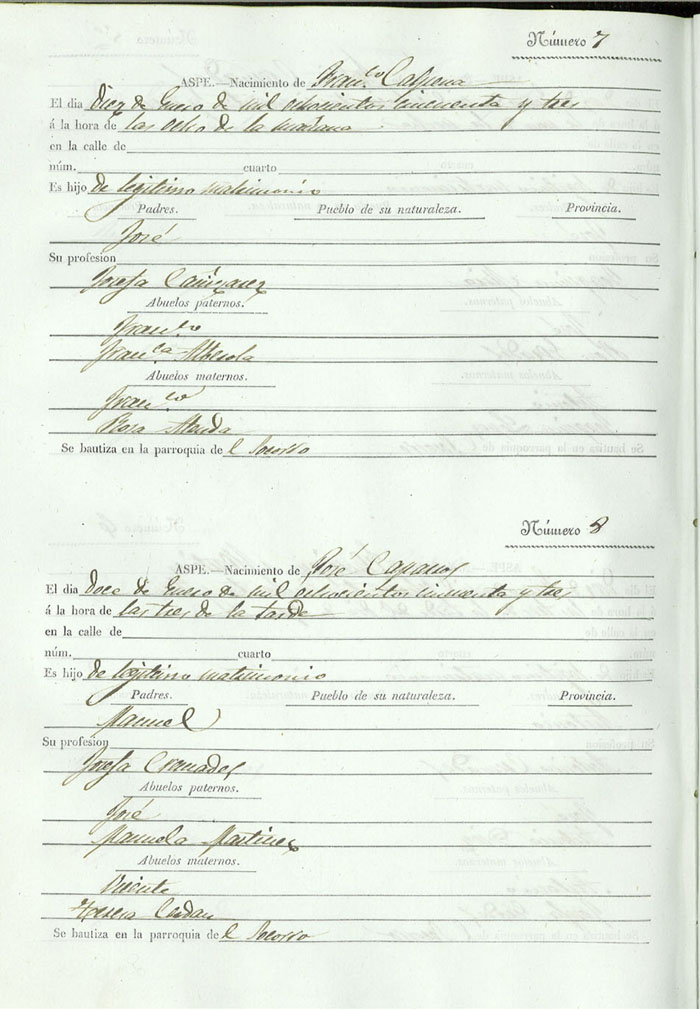 Número 7
ASPE.—Nacimiento de Fran.co Calpena
El dia Diez de Enero de mil ochocientos cincuenta y tres
á la hora de las ocho de la mañana
en la calle de
núm. cuarto
Es hijo de legitimo matrimonio
Padres. Pueblo de su naturaleza. Provincia.
José
Su profesion
Josefa Cañizares
Abuelos paternos.
Fran.co
Fran.ca Alberola
Abuelos maternos.
Fran.co
Rosa
Se bautiza en la parroquia de l Socorro
Número 8
ASPE.—Nacimiento de José
El dia doce de Enero de mil ochocientos cincuenta y tres
á la hora de las tres de la tarde
en la calle de
núm. cuarto
Es hijo de legitimo matrimonio
Padres. Pueblo de su naturaleza. Provincia.
Manuel
Su profesion
Josefa
Abuelos paternos.
José
Manuela Martinez
Abuelos maternos.
Vicente
Teresa Cerdan
Se bautiza en la parroquia de l Socorro